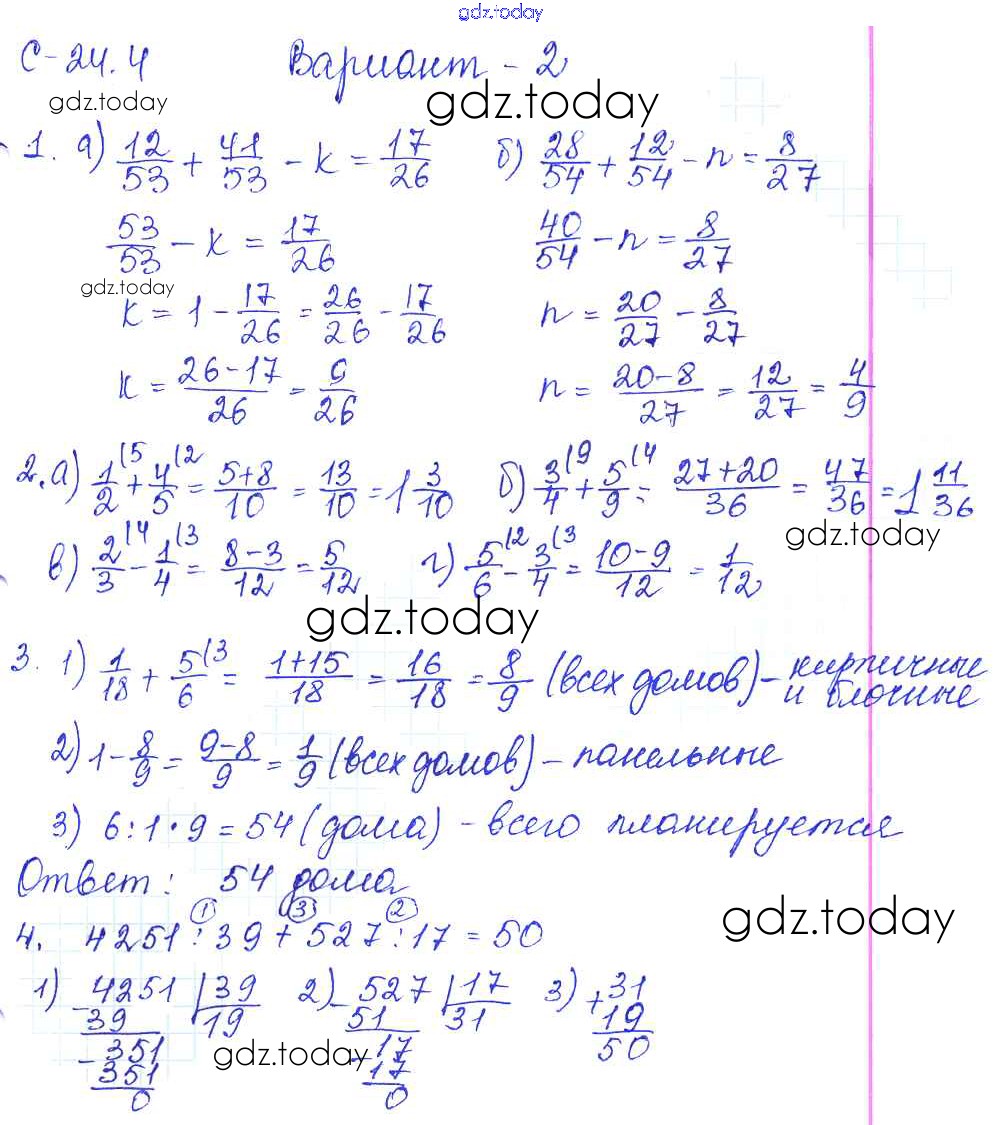 gdz.today
С-24.4 Вариант - 2
gdz.today gdz.today
1. а) 12/53 + 41/53 - k = 17/26 б) 28/54 + 12/54 - n = 8/27
53/53 - k = 17/26 40/54 - n = 8/27
gdz.today
k = 1 - 17/26 = 26/26 - 17/26 n = 20/27 - 8/27
k = (26-17)/26 = 9/26 n = (20-8)/27 = 12/27 = 4/9
2. а) 1/2 (5 + 4/5 (2 = (5+8)/10 = 13/10 = 1 3/10 б) 3/4 (9 + 5/9 (4 = (27+20)/36 = 47/36 = 1 11/36
gdz.today
в) 2/3 (4 - 1/4 (3 = (8-3)/12 = 5/12 г) 5/6 (2 - 3/4 (3 = (10-9)/12 = 1/12
gdz.today
3. 1) 1/18 + 5/6 (3 = (1+15)/18 = 16/18 = 8/9 (всех домов) - кирпичные
и блочные
2) 1 - 8/9 = (9-8)/9 = 1/9 (всех домов) - панельные
3) 6 : 1 · 9 = 54 (дома) - всего планируется
Ответ: 54 дома
gdz.today
① ③ ②
4. 4251 : 39 + 527 : 17 = 50
1) - 4251 | 39 2) - 527 | 17 3) + 31
39 19 51 31 19
- 351 - 17 50
351 17
0 0
gdz.today